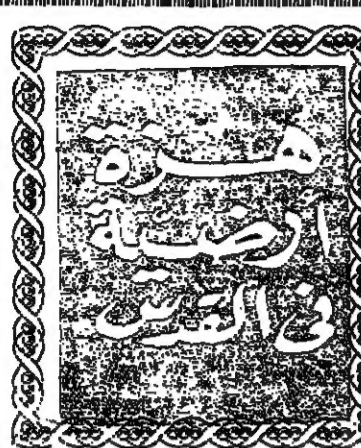 هزة
ارضية
في القدس